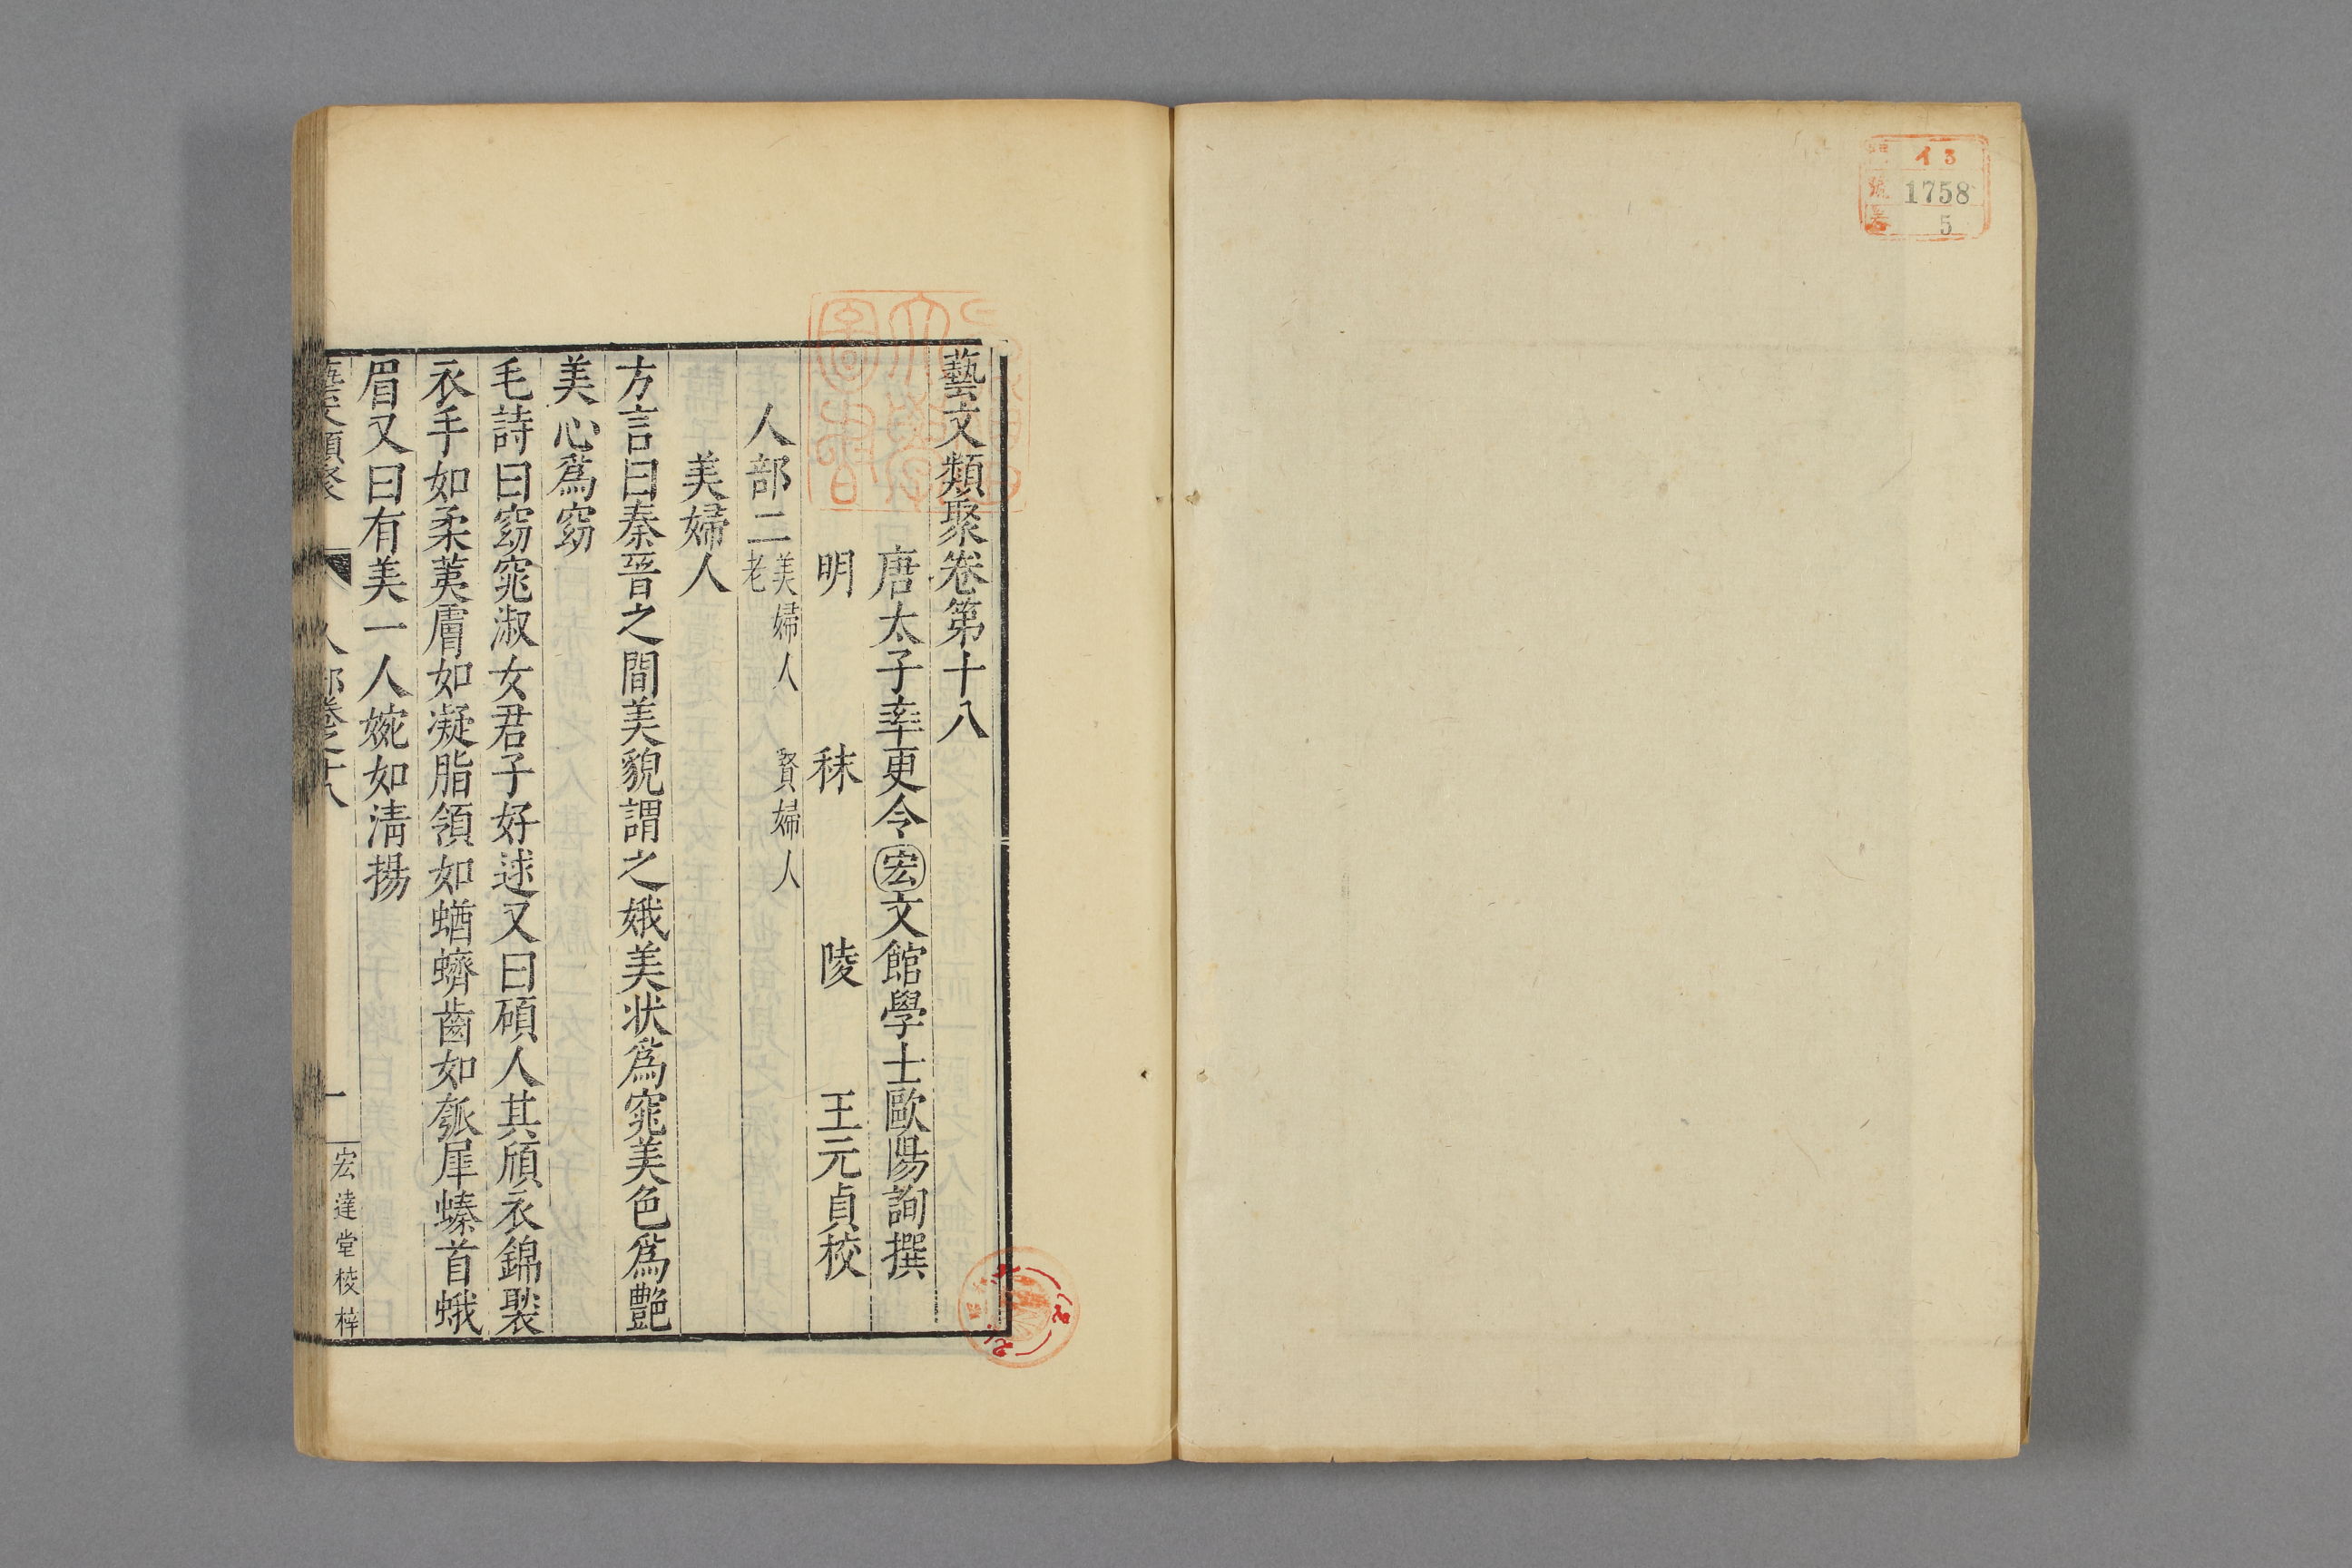 イ3
1758
5
藝文類聚卷第十八
唐太子率更令宏文館學士歐陽詢撰
明 秣 陵 王元貞校
人部二 美婦人 賢婦人 老
美婦人
方言曰秦晉之間美貌謂之娥美狀爲窕美色爲艷
美心爲窈
毛詩曰窈窕淑女君子好逑又曰碩人其頎衣錦褧
衣手如柔荑膚如凝脂領如蝤蠐齒如瓠犀螓首蛾
眉又曰有美一人婉如清揚
藝文類聚 人部卷之十八 一 宏達堂校梓